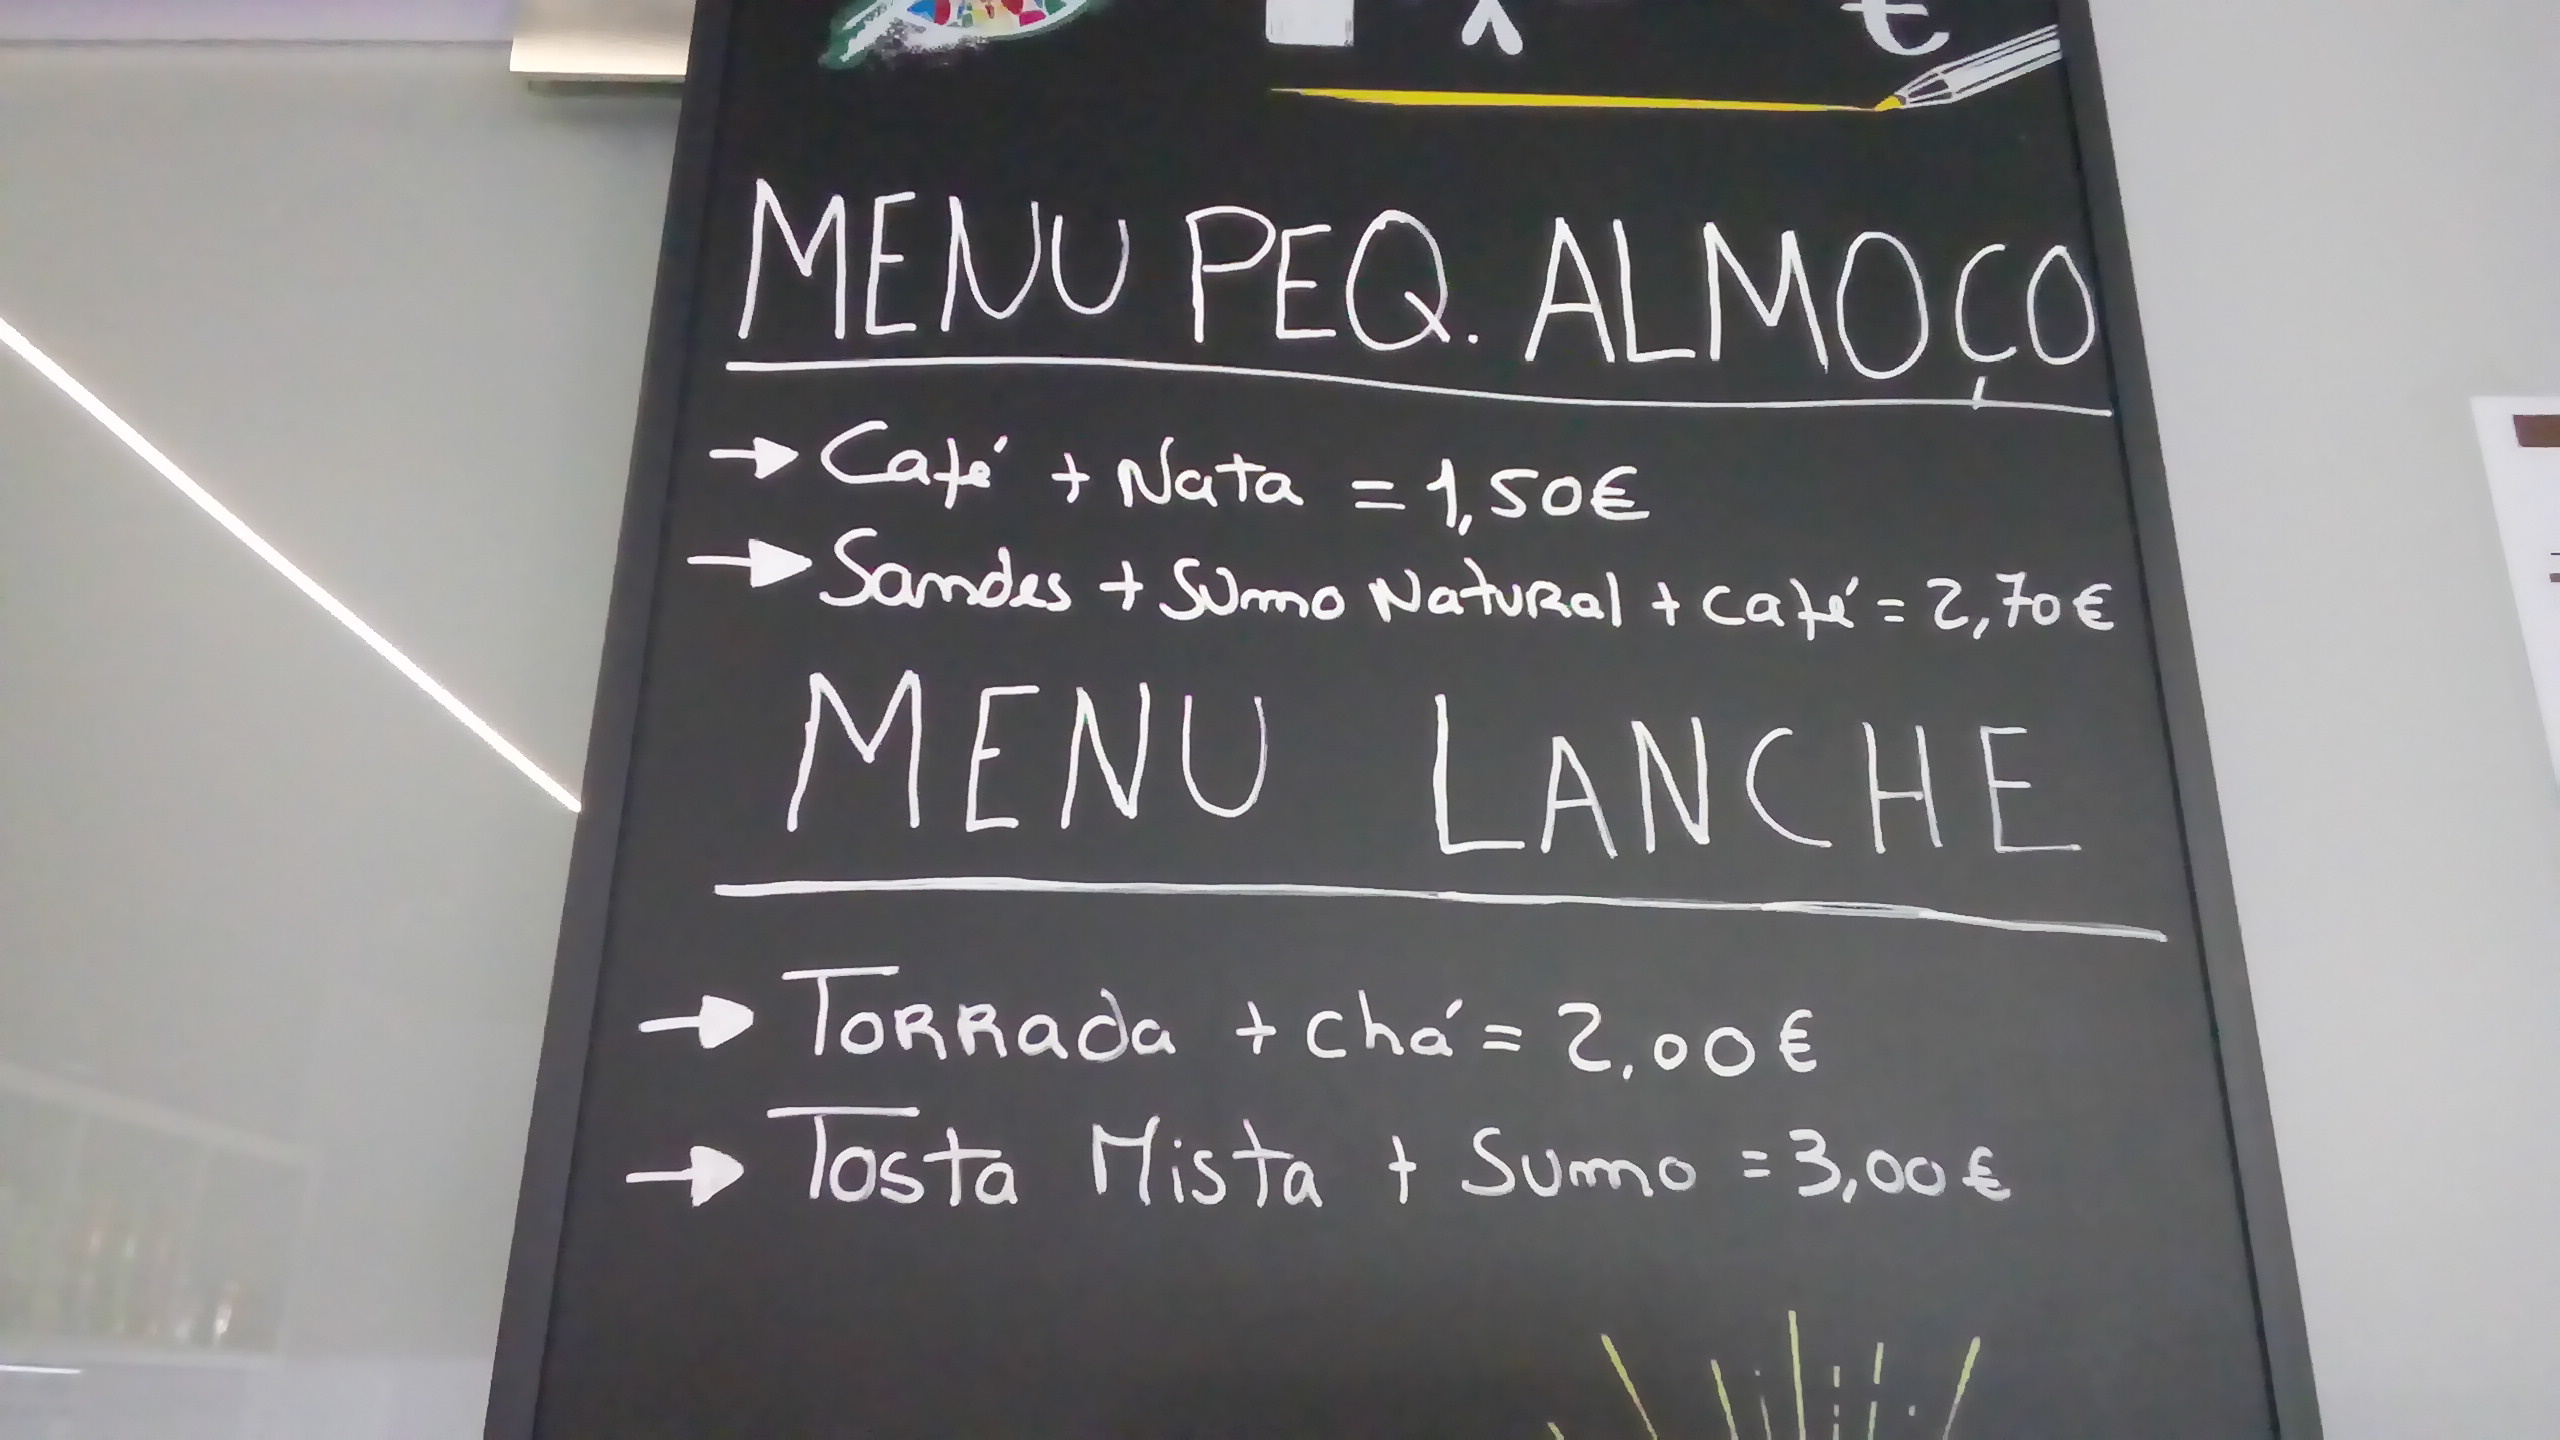 MENU PEQ. ALMOÇO
→ Café + Nata = 1,50€
→ Sandes + Sumo Natural + Café = 2,70€
MENU LANCHE
→ Torrada + chá = 2,00€
→ Tosta Mista + Sumo = 3,00€